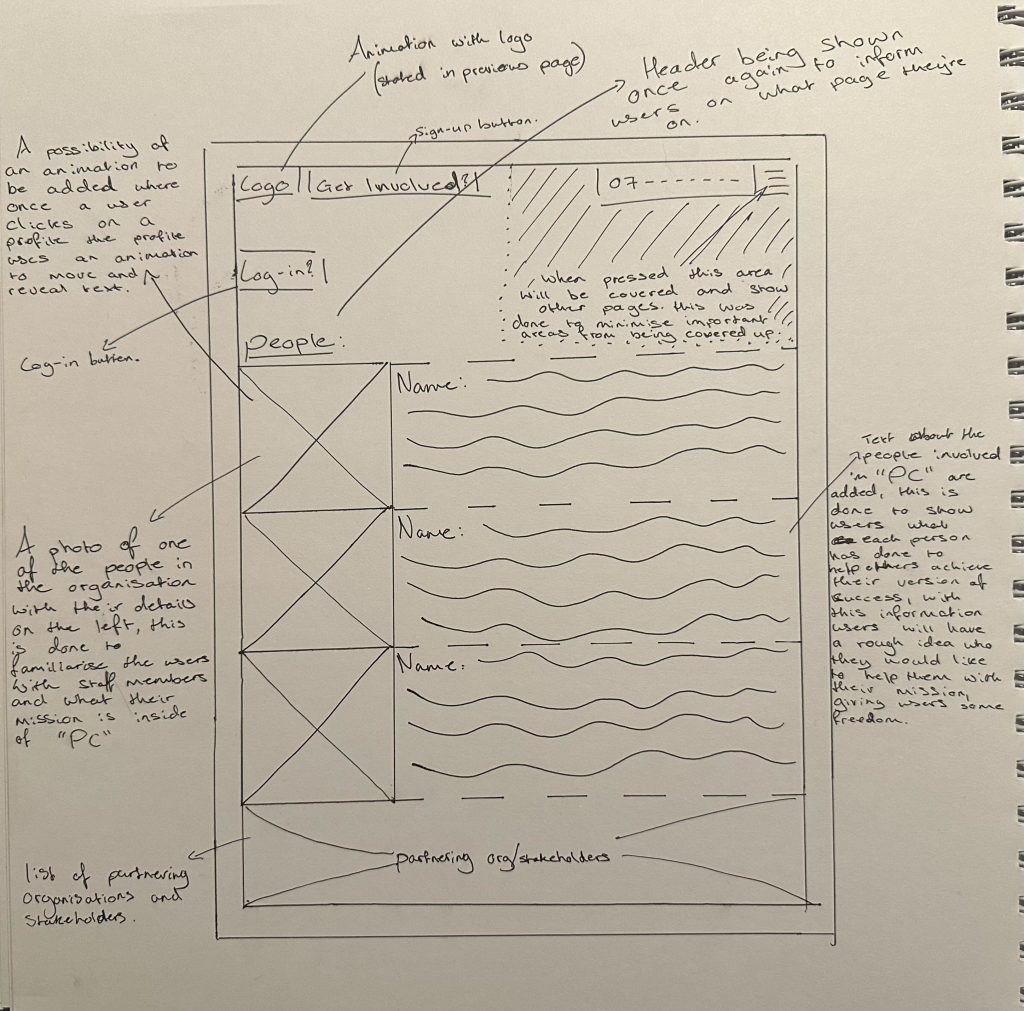 Animation with logo
(stated in previous page)
Header being shown
once again to inform
users on what page they're
on.
Sign-up button.
A possibility of
an animation to
be added where
once a user
clicks on a
profile the profile
uses an animation
to move and
reveal text.
Logo
Get Involved?
07--------
Log-in?
When pressed this area
will be covered and show
other pages. this was
done to minimise important
areas from being covered up.
Log-in button.
people:
Name:
Name:
Name:
Text about the
people involved
in "PC" are
added, this is
done to show
users what
each person
has done to
help others achieve
their version of
success, with
this information
users will have
a rough idea who
they would like
to help them with
their mission,
giving users some
freedom.
A photo of one
of the people in
the organisation
with their details
on the left, this
is done to
familiarise the users
with staff members
and what their
mission is inside
of "PC"
partnering org/stakeholders
list of partnering
organisations and
stakeholders.